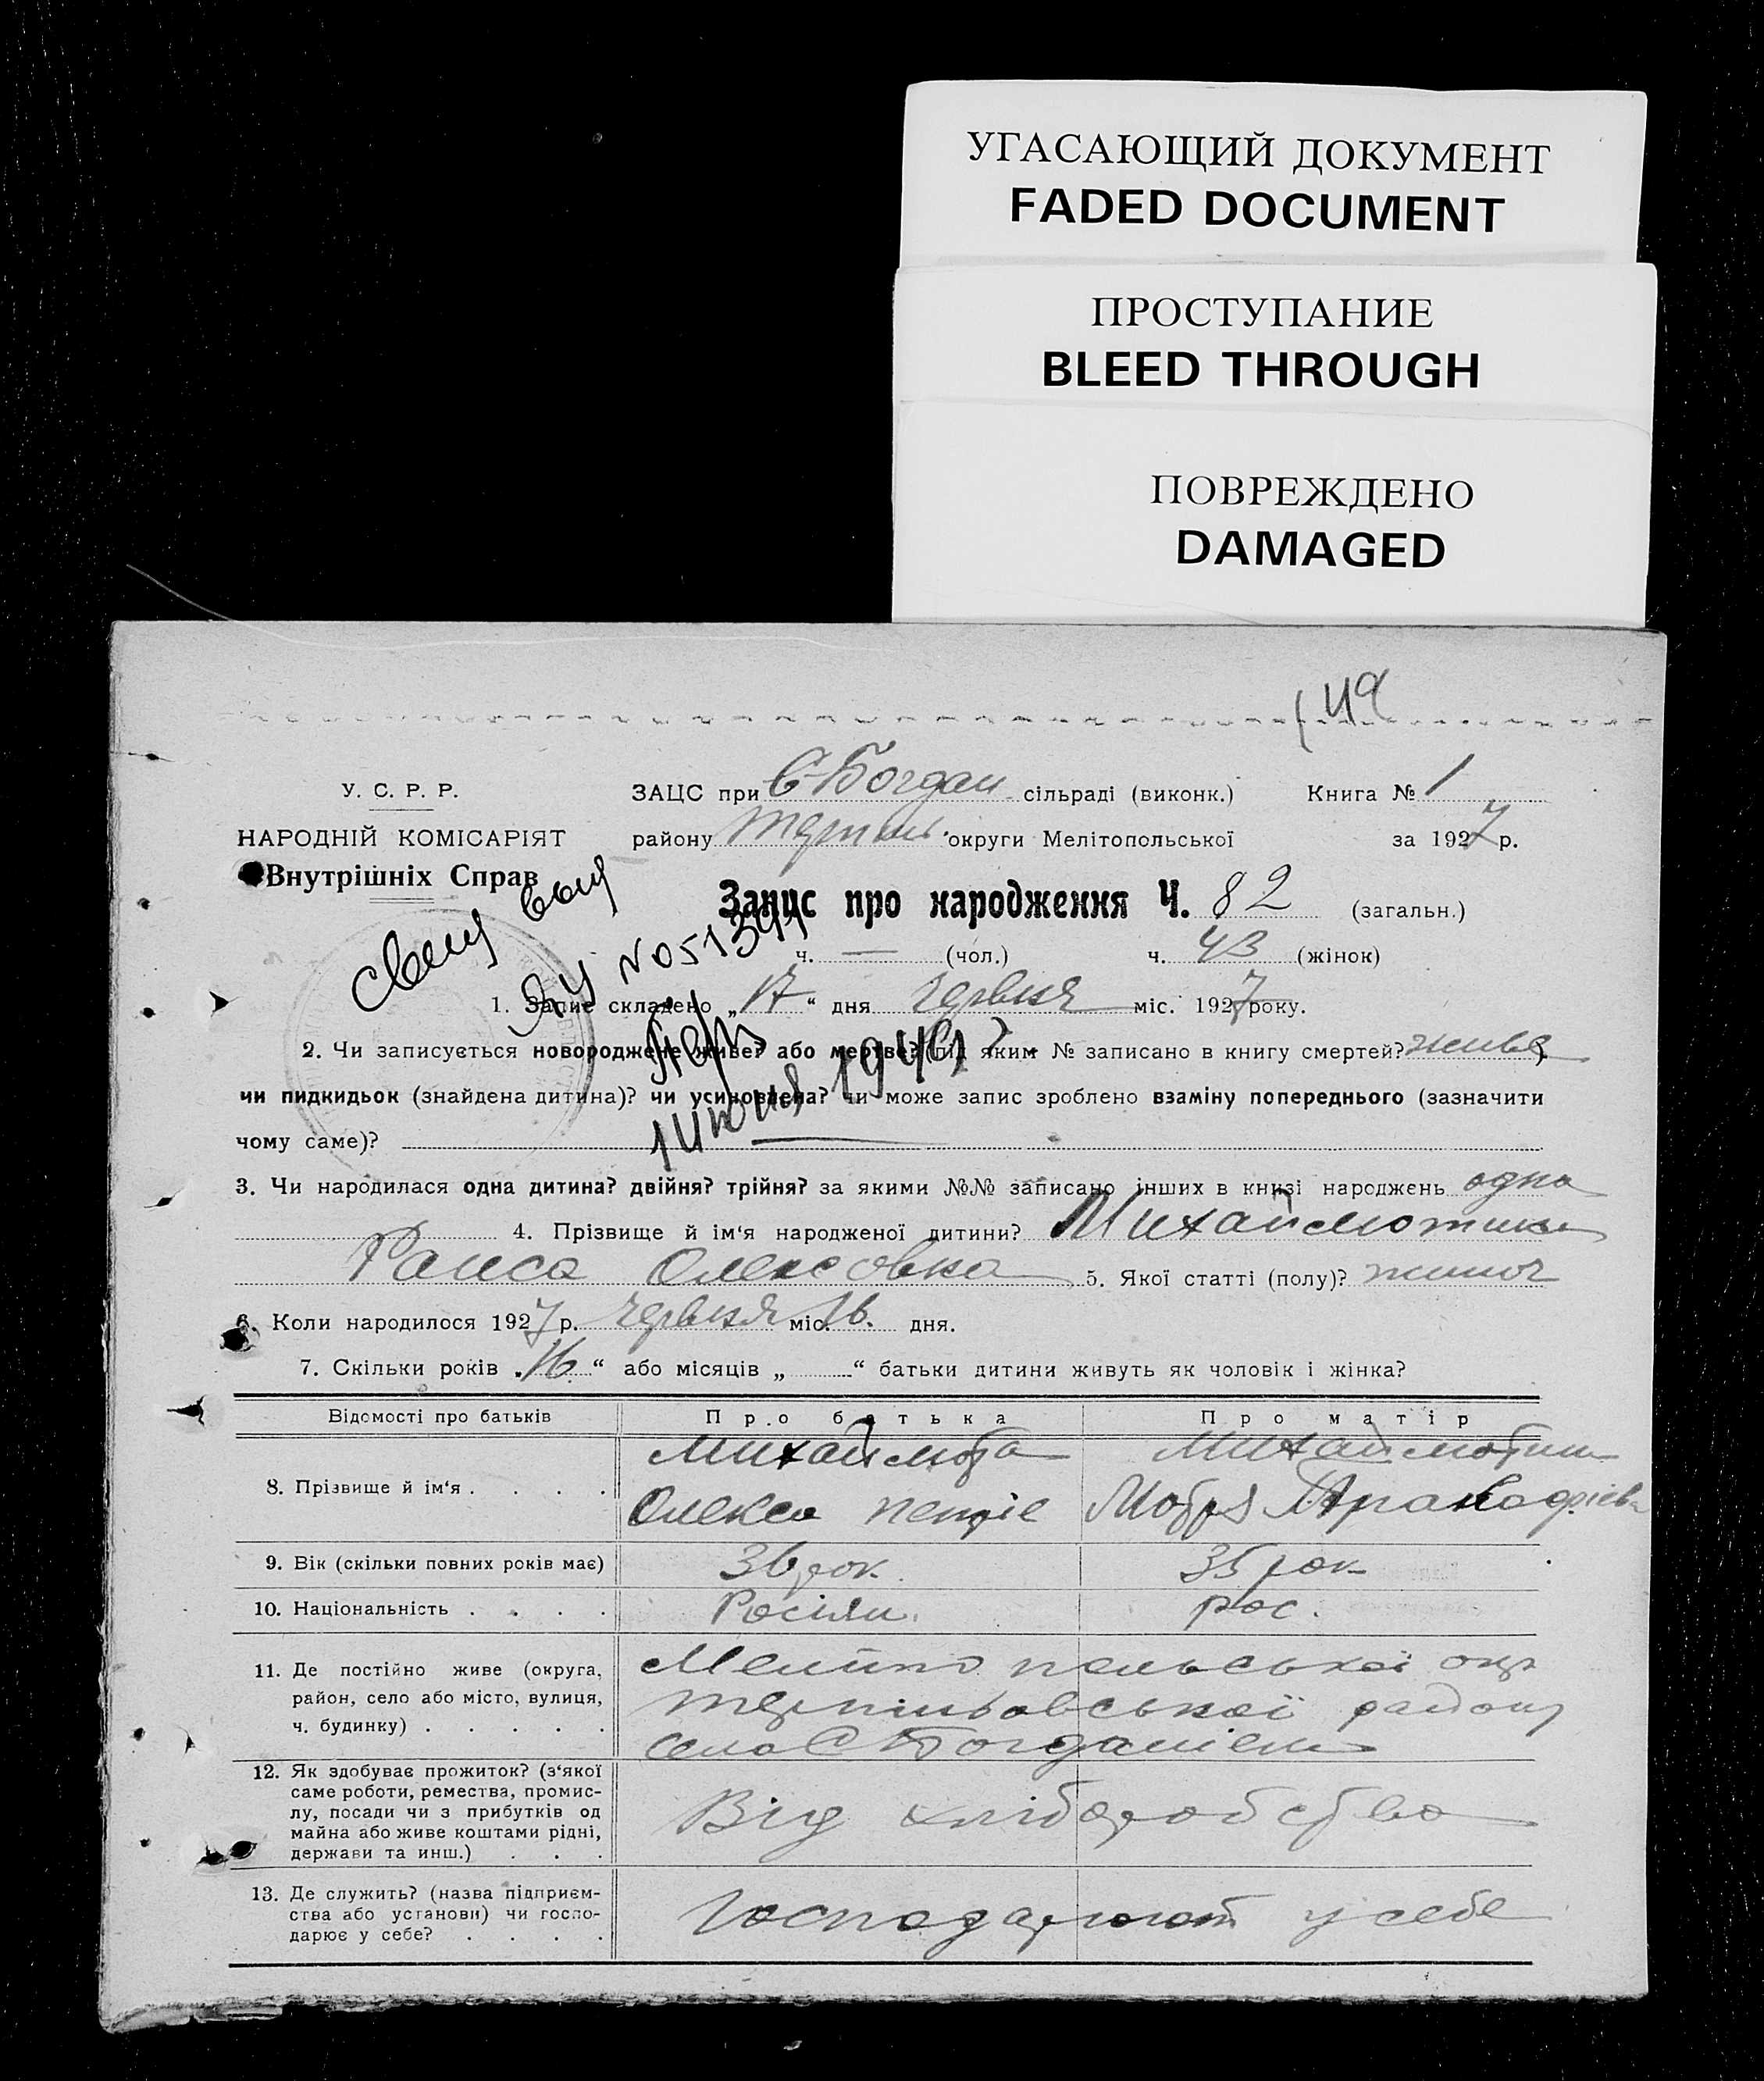 УГАСАЮЩИЙ ДОКУМЕНТ
FADED DOCUMENT
ПРОСТУПАНИЕ
BLEED THROUGH
ПОВРЕЖДЕНО
DAMAGED
У. С. Р. Р.
НАРОДНІЙ КОМІСАРІЯТ
Внутрішніх Справ
ЗАЦС при С-Богдан сільраді (виконк.) Книга № 1
району округи Мелітопольської за 1927 р.
Запис про народження Ч. 82 (загальн.)
ч. — (чол.) ч. 43 (жінок)
1. Запис складено „17“ дня червня міс. 1927 року.
2. Чи записується новороджене живе? або мертве? (під яким № записано в книгу смертей? живе)
чи пидкидьок (знайдена дитина)? чи усиновлена? чи може запис зроблено взаміну попереднього (зазначити
чому саме)?
№ 051344
1 июня 194
3. Чи народилася одна дитина? двійня? трійня? за якими №№ записано інших в книзі народжень одна
4. Прізвище й ім‘я народженої дитини?
Раиса Олексовна 5. Якої статті (полу)? жіноч
6. Коли народилося 1927 р. червня міс. 16. дня.
7. Скільки років „16“ або місяців „ “ батьки дитини живуть як чоловік і жінка?
Відомості про батьків Про батька Про матір
8. Прізвище й ім‘я . . . .
Олекса
9. Вік (скільки повних років має) 36 рок. 35 рок
10. Національність . . . . Росіян. рос.
11. Де постійно живе (округа,
район, село або місто, вулиця,
ч. будинку) . . . . .
Мелітопольської окр
району
село С Богданівка
12. Як здобуває прожиток? (з‘якої
саме роботи, ремества, промис-
лу, посади чи з прибутків од
майна або живе коштами рідні,
держави та инш.) . . .
Від хліборобства
13. Де служить? (назва підприєм-
ства або установи) чи госпо-
дарює у себе? . . . .
Господарюют у себе